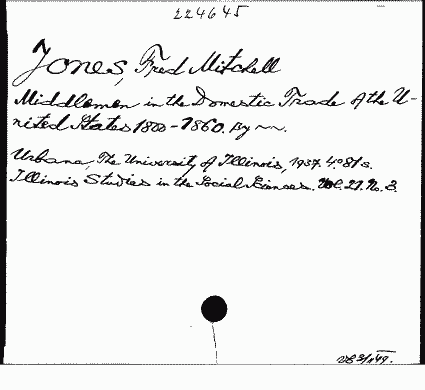 224645
Jones, Fred Mitchell
Middlemen in the Domestic Trade of the U-
nited States 1800-1860. By ~~.
Urbana, The University of Illinois, 1937. 4:o 81 s.
Illinois Studies in the Social Sciences. Vol. 21. No. 3.